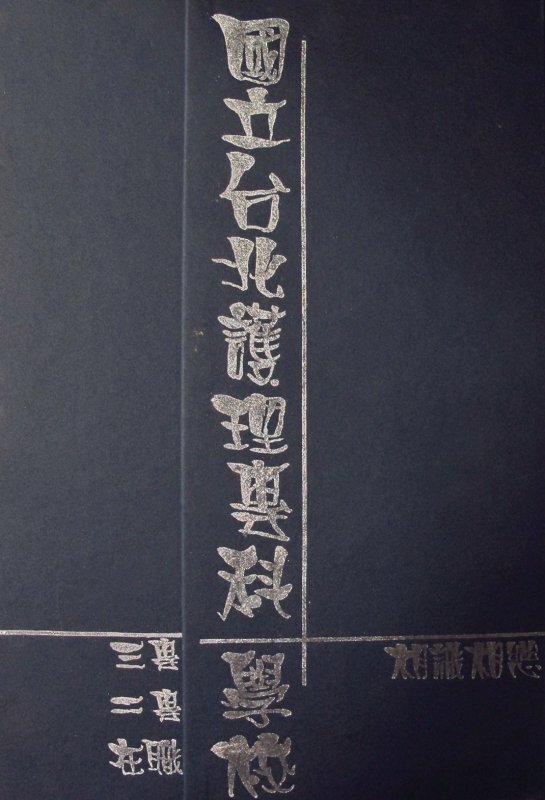 國立台北護理專科學校
三專
二專
在職